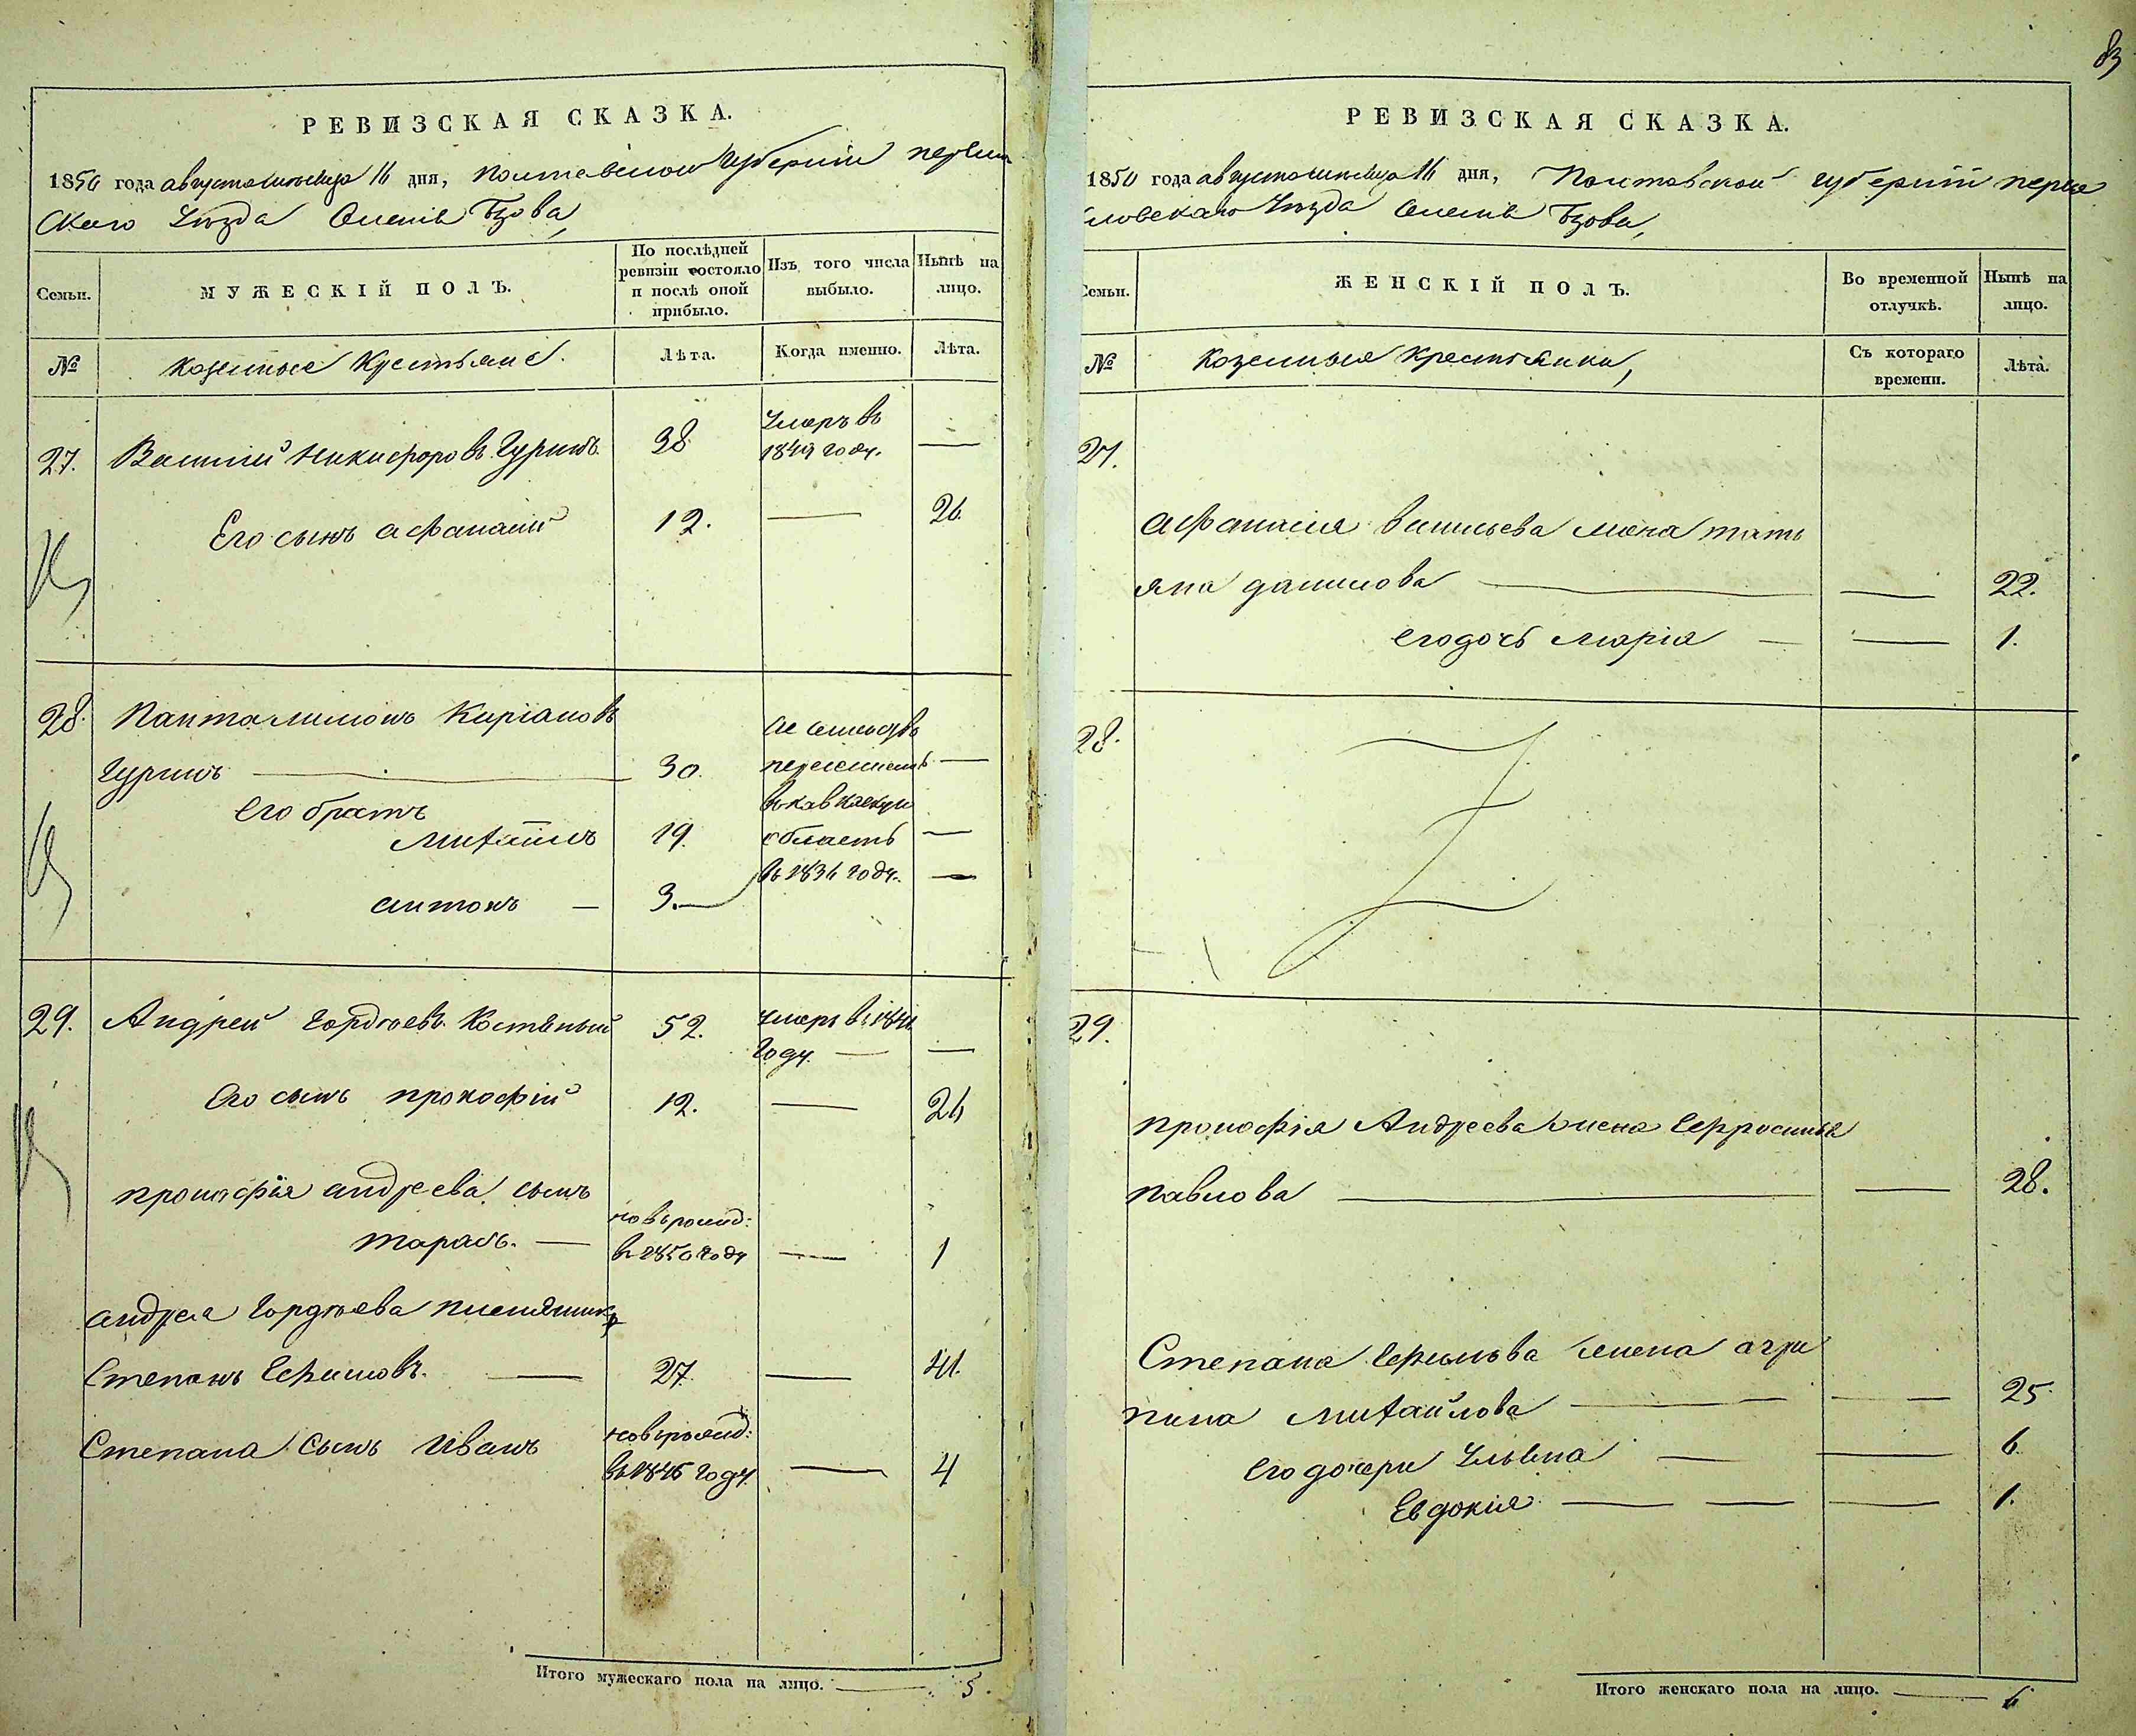 РЕВИЗСКАЯ СКАЗКА.
1850 года августа месяца 16 дня, Полтавской Губернии переяслав
Скаго Уѣзда Селенія Бзова,
Семьи.
МУЖЕСКІЙ ПОЛЪ.
По послѣдней ревизіи состояло и послѣ оной прибыло.
Изъ того числа выбыло.
Нынѣ на лицо.
№
Казенные Крестьяне.
Лѣта.
Когда именно.
Лѣта.
27. Василий Никифоровъ Гуринъ. 38 Умеръ въ 1849 году. —
Его сынъ афанасий 12. — 26.
28. Панталимонъ Киріановъ
Гуринъ — 30. — 
переселенъ
Его братъ
Михаилъ 19. область —
антонъ — 3. — въ 1836 году. —
29. Андрей Гордѣевъ Костяный 52. умеръ въ
году. — —
Его сынъ прокофій 12. — 26
прокофія андреева сынъ
тарасъ. — новорожд: въ 1850 году — 1
андрея Гордѣева племянникъ
Степанъ Ефимовъ. — 27. — 41.
Степана Сынъ Иванъ новорожд: въ 1846 году — 4
Итого мужескаго пола на лицо. — 5.
83
РЕВИЗСКАЯ СКАЗКА.
1850 года августа месяца 16 дня, Полтавской губерніи перея
словскаго Уѣзда Селенія Бзова,
Семьи.
ЖЕНСКІЙ ПОЛЪ.
Во временной отлучкѣ.
Нынѣ на лицо.
№
Казенныя крестьянки,
Съ котораго времени.
Лѣта.
27.
афанасія Васильева жена тать
яна данилова — — 22.
его дочь марія — — 1.
28.
29.
прокофія Андреева жена Ефросинья
павлова — — 28.
Степана Ефимова жена агри
пина михайлова — — 25.
его дочери Ульяна — — 6.
Евдокія — — — 1.
Итого женскаго пола на лицо. — 6